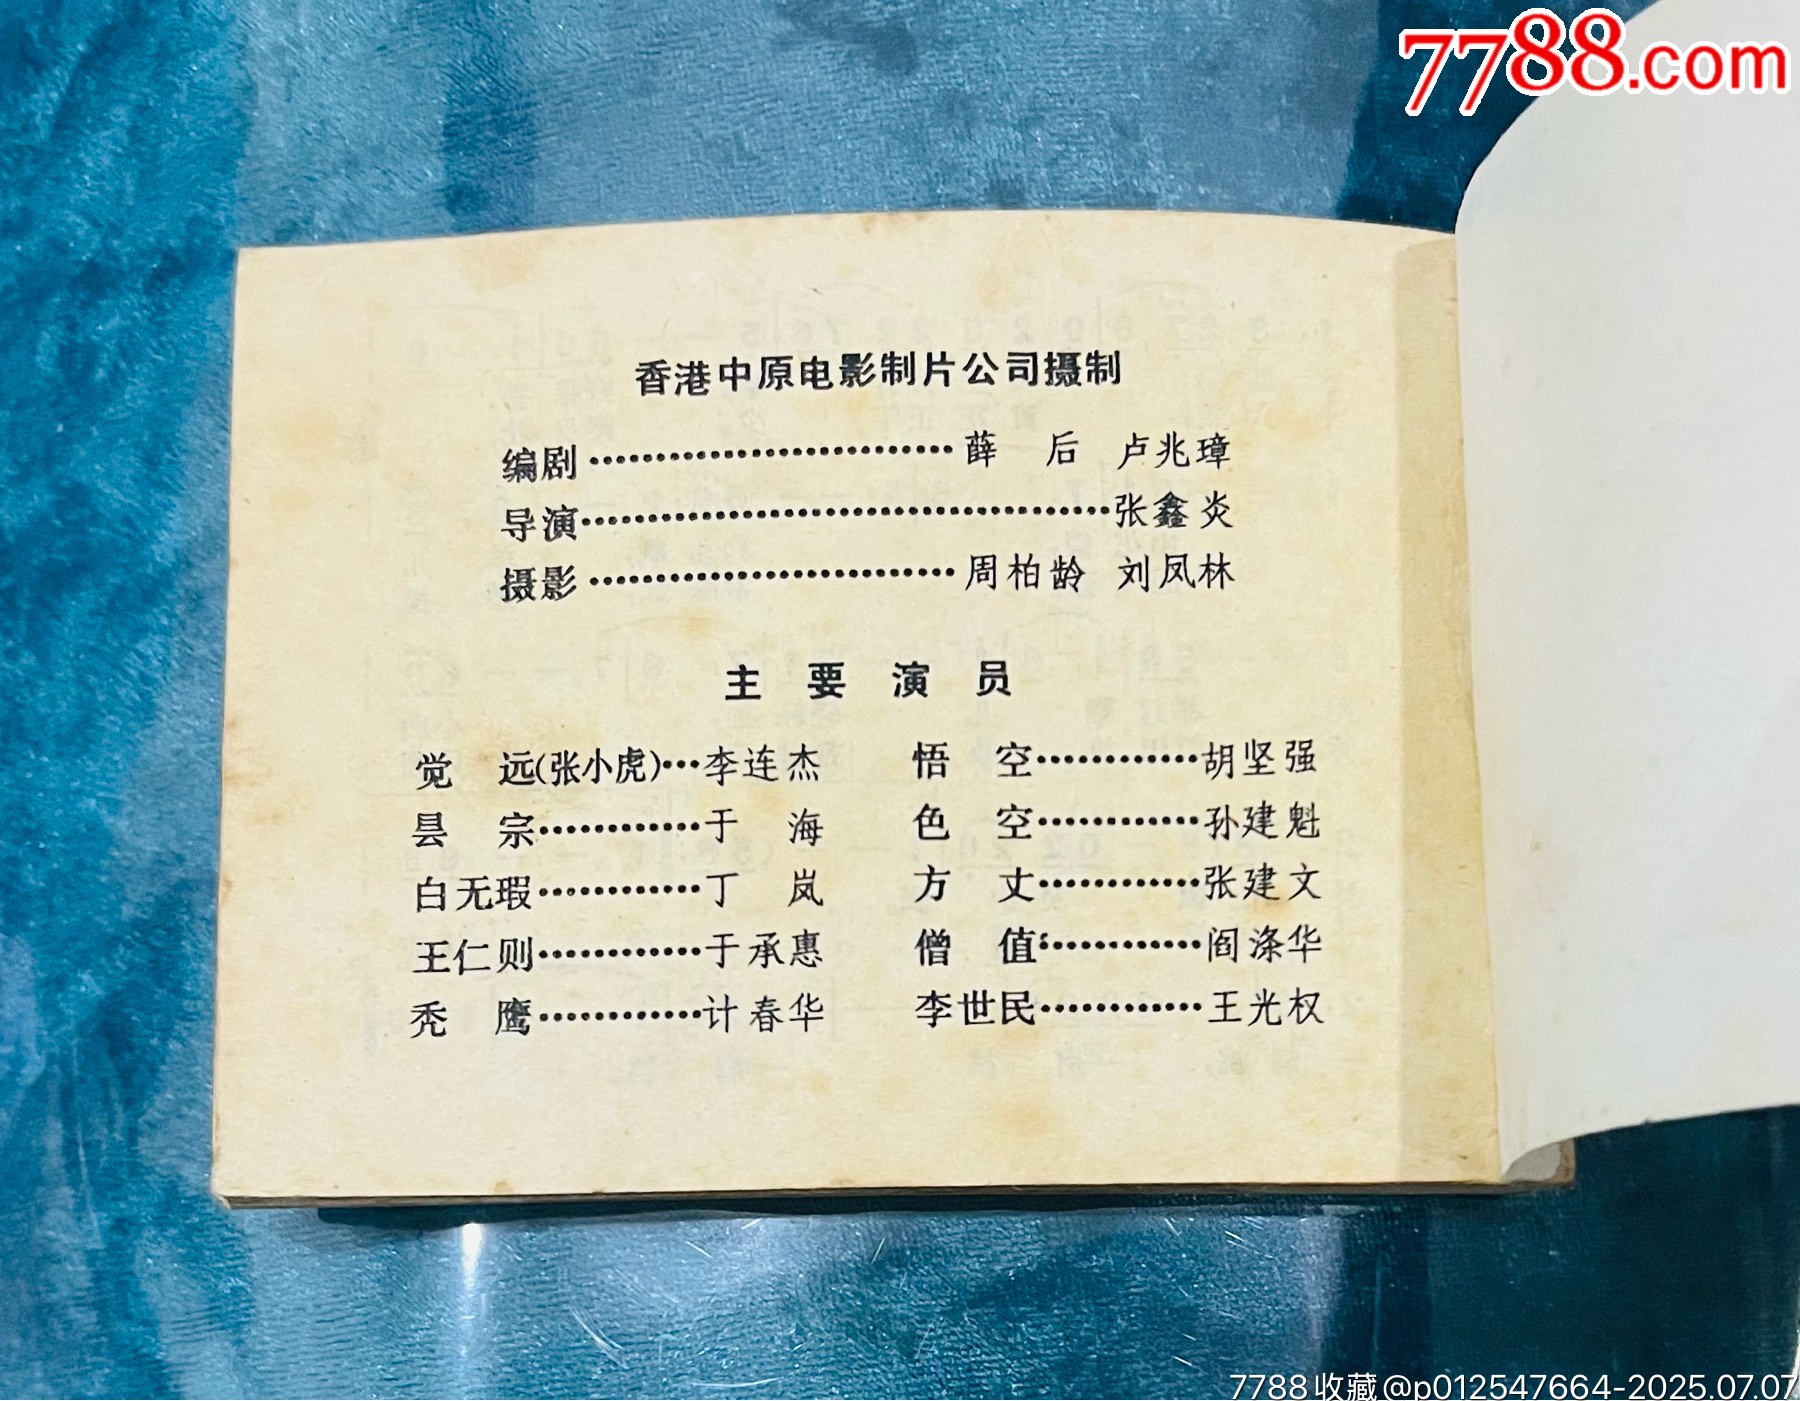 7788.com
香港中原电影制片公司摄制
编剧…………………………薛 后 卢兆璋
导演……………………………………张鑫炎
摄影…………………………周柏龄 刘凤林
主要演员
觉 远(张小虎)…李连杰 悟 空…………胡坚强
昙 宗…………于 海 色 空…………孙建魁
白无瑕…………丁 岚 方 丈…………张建文
王仁则…………于承惠 僧 值…………阎涤华
秃 鹰…………计春华 李世民…………王光权
7788收藏@p012547664-2025.07.07